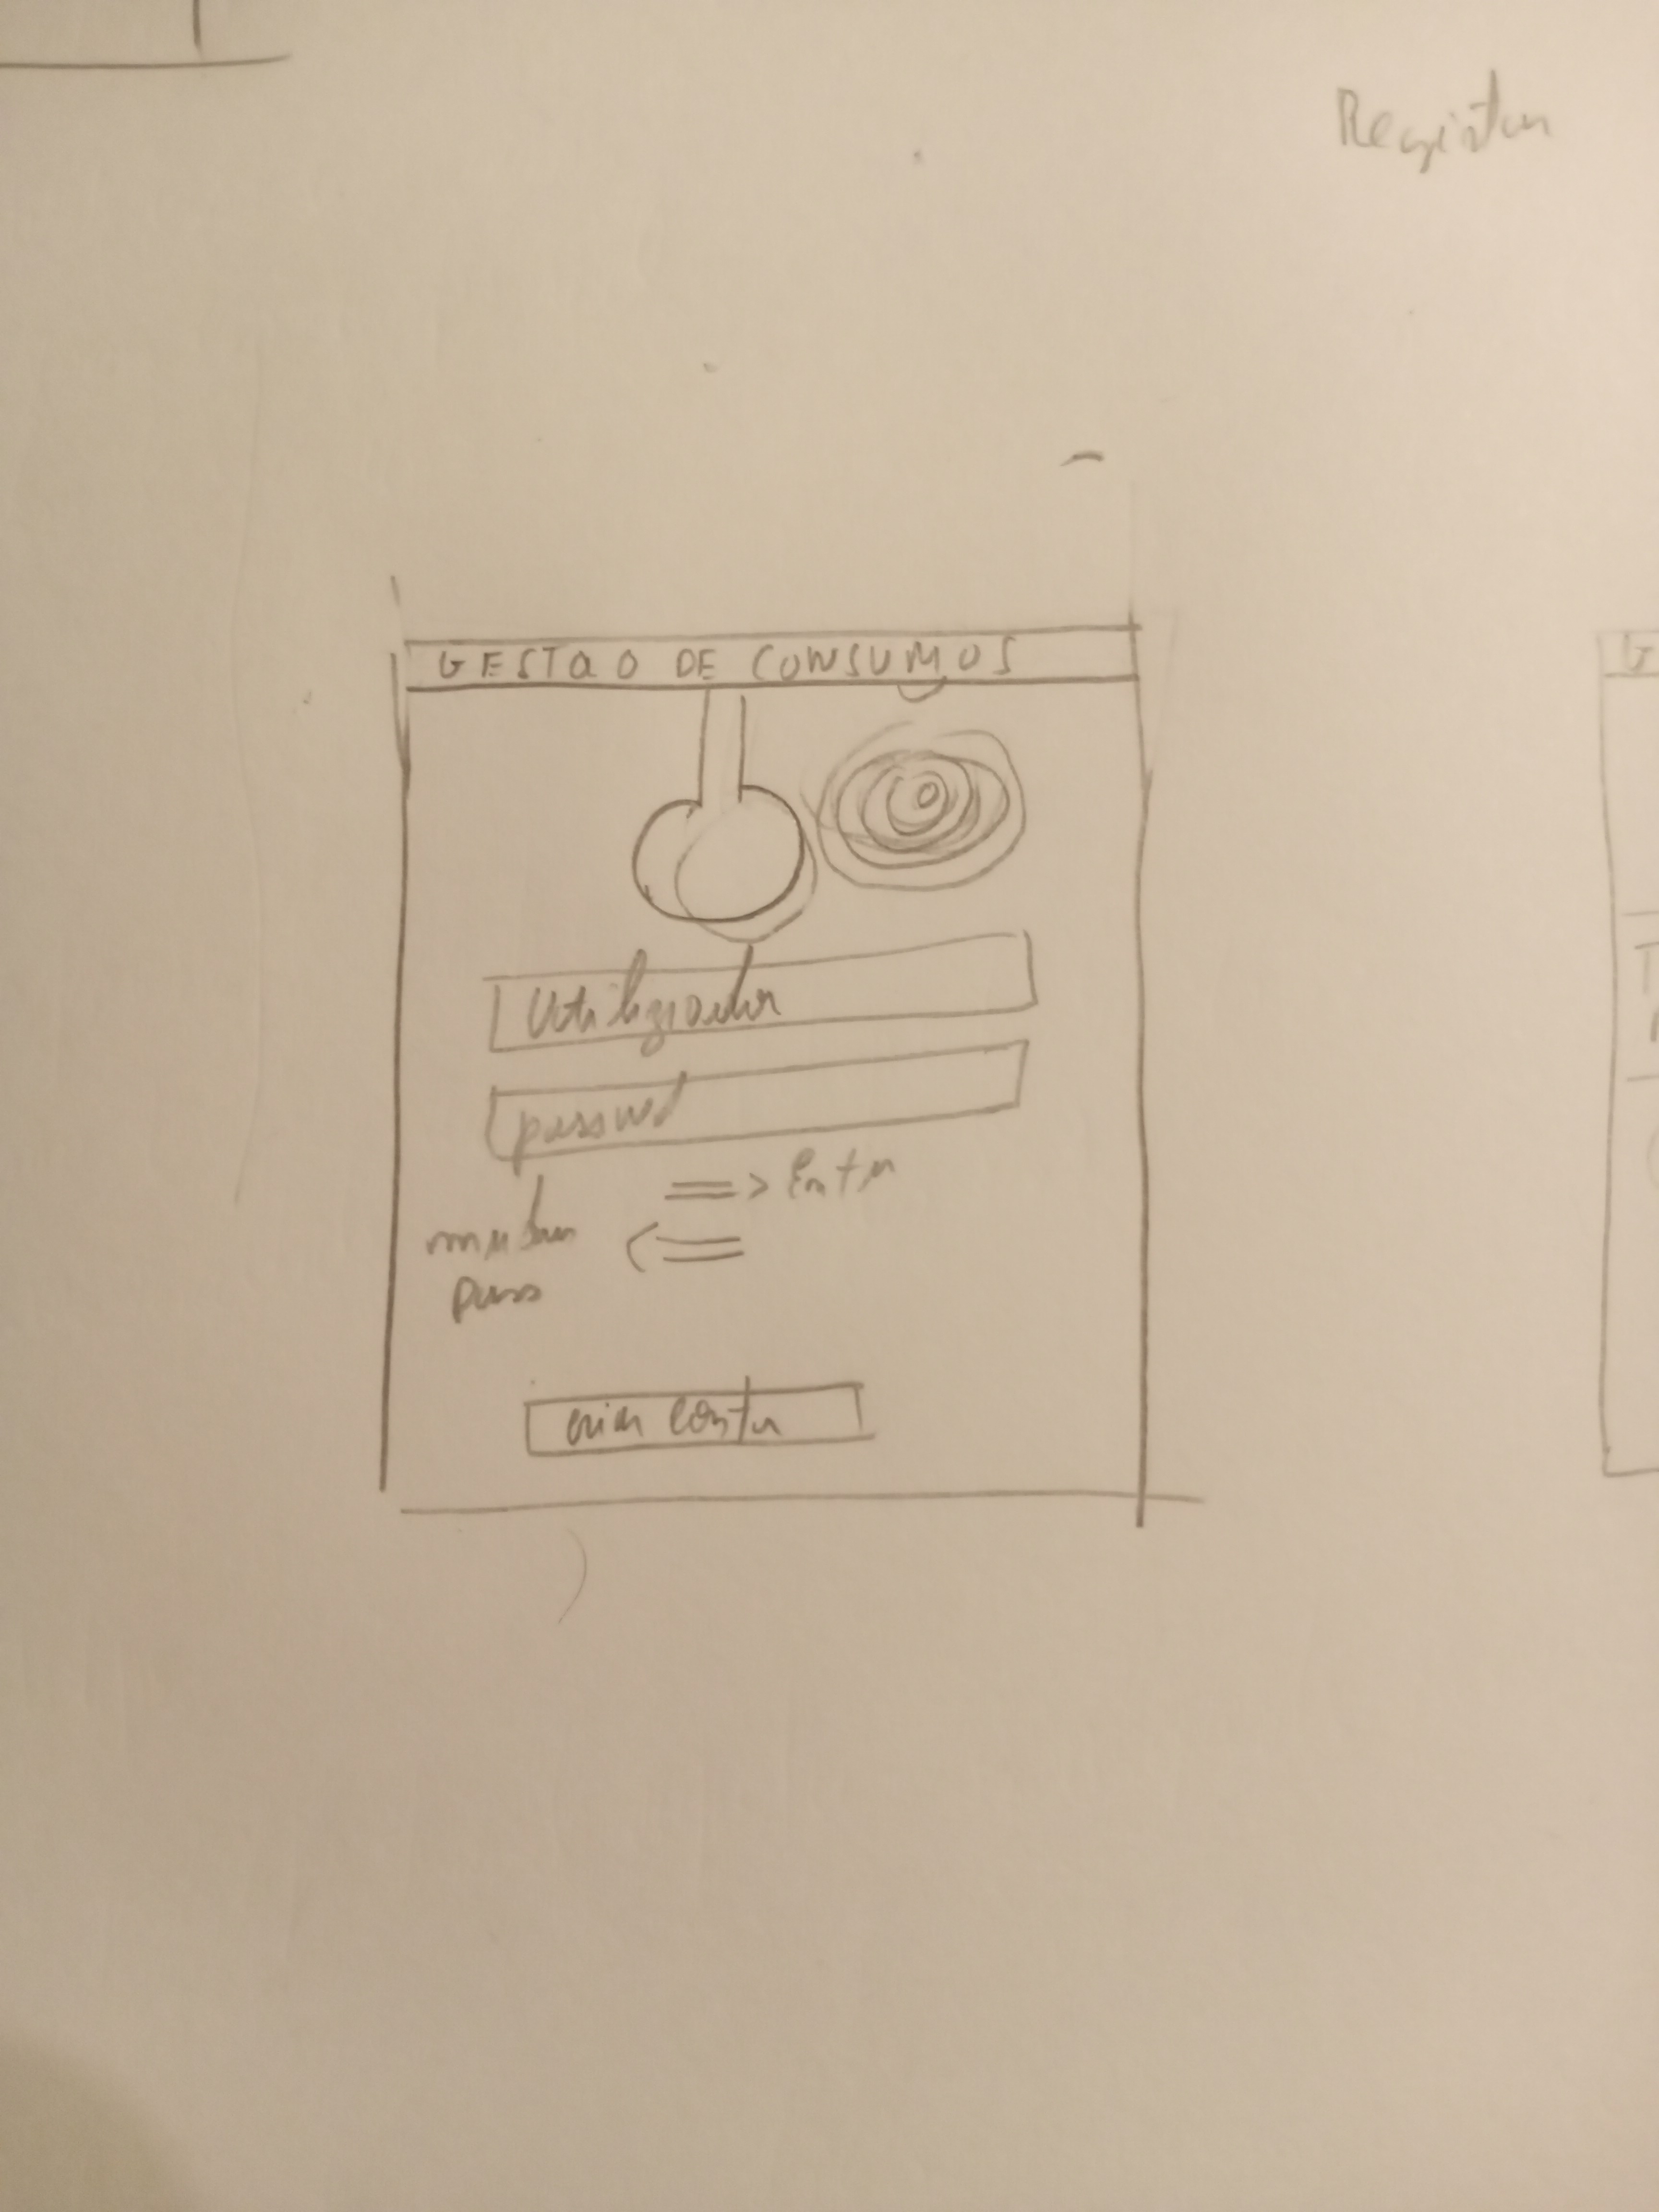 Registar
GESTaO DE CONSUMOS
G
Utilizador
passwd
=> Entrar
mudar <=
pass
criar conta